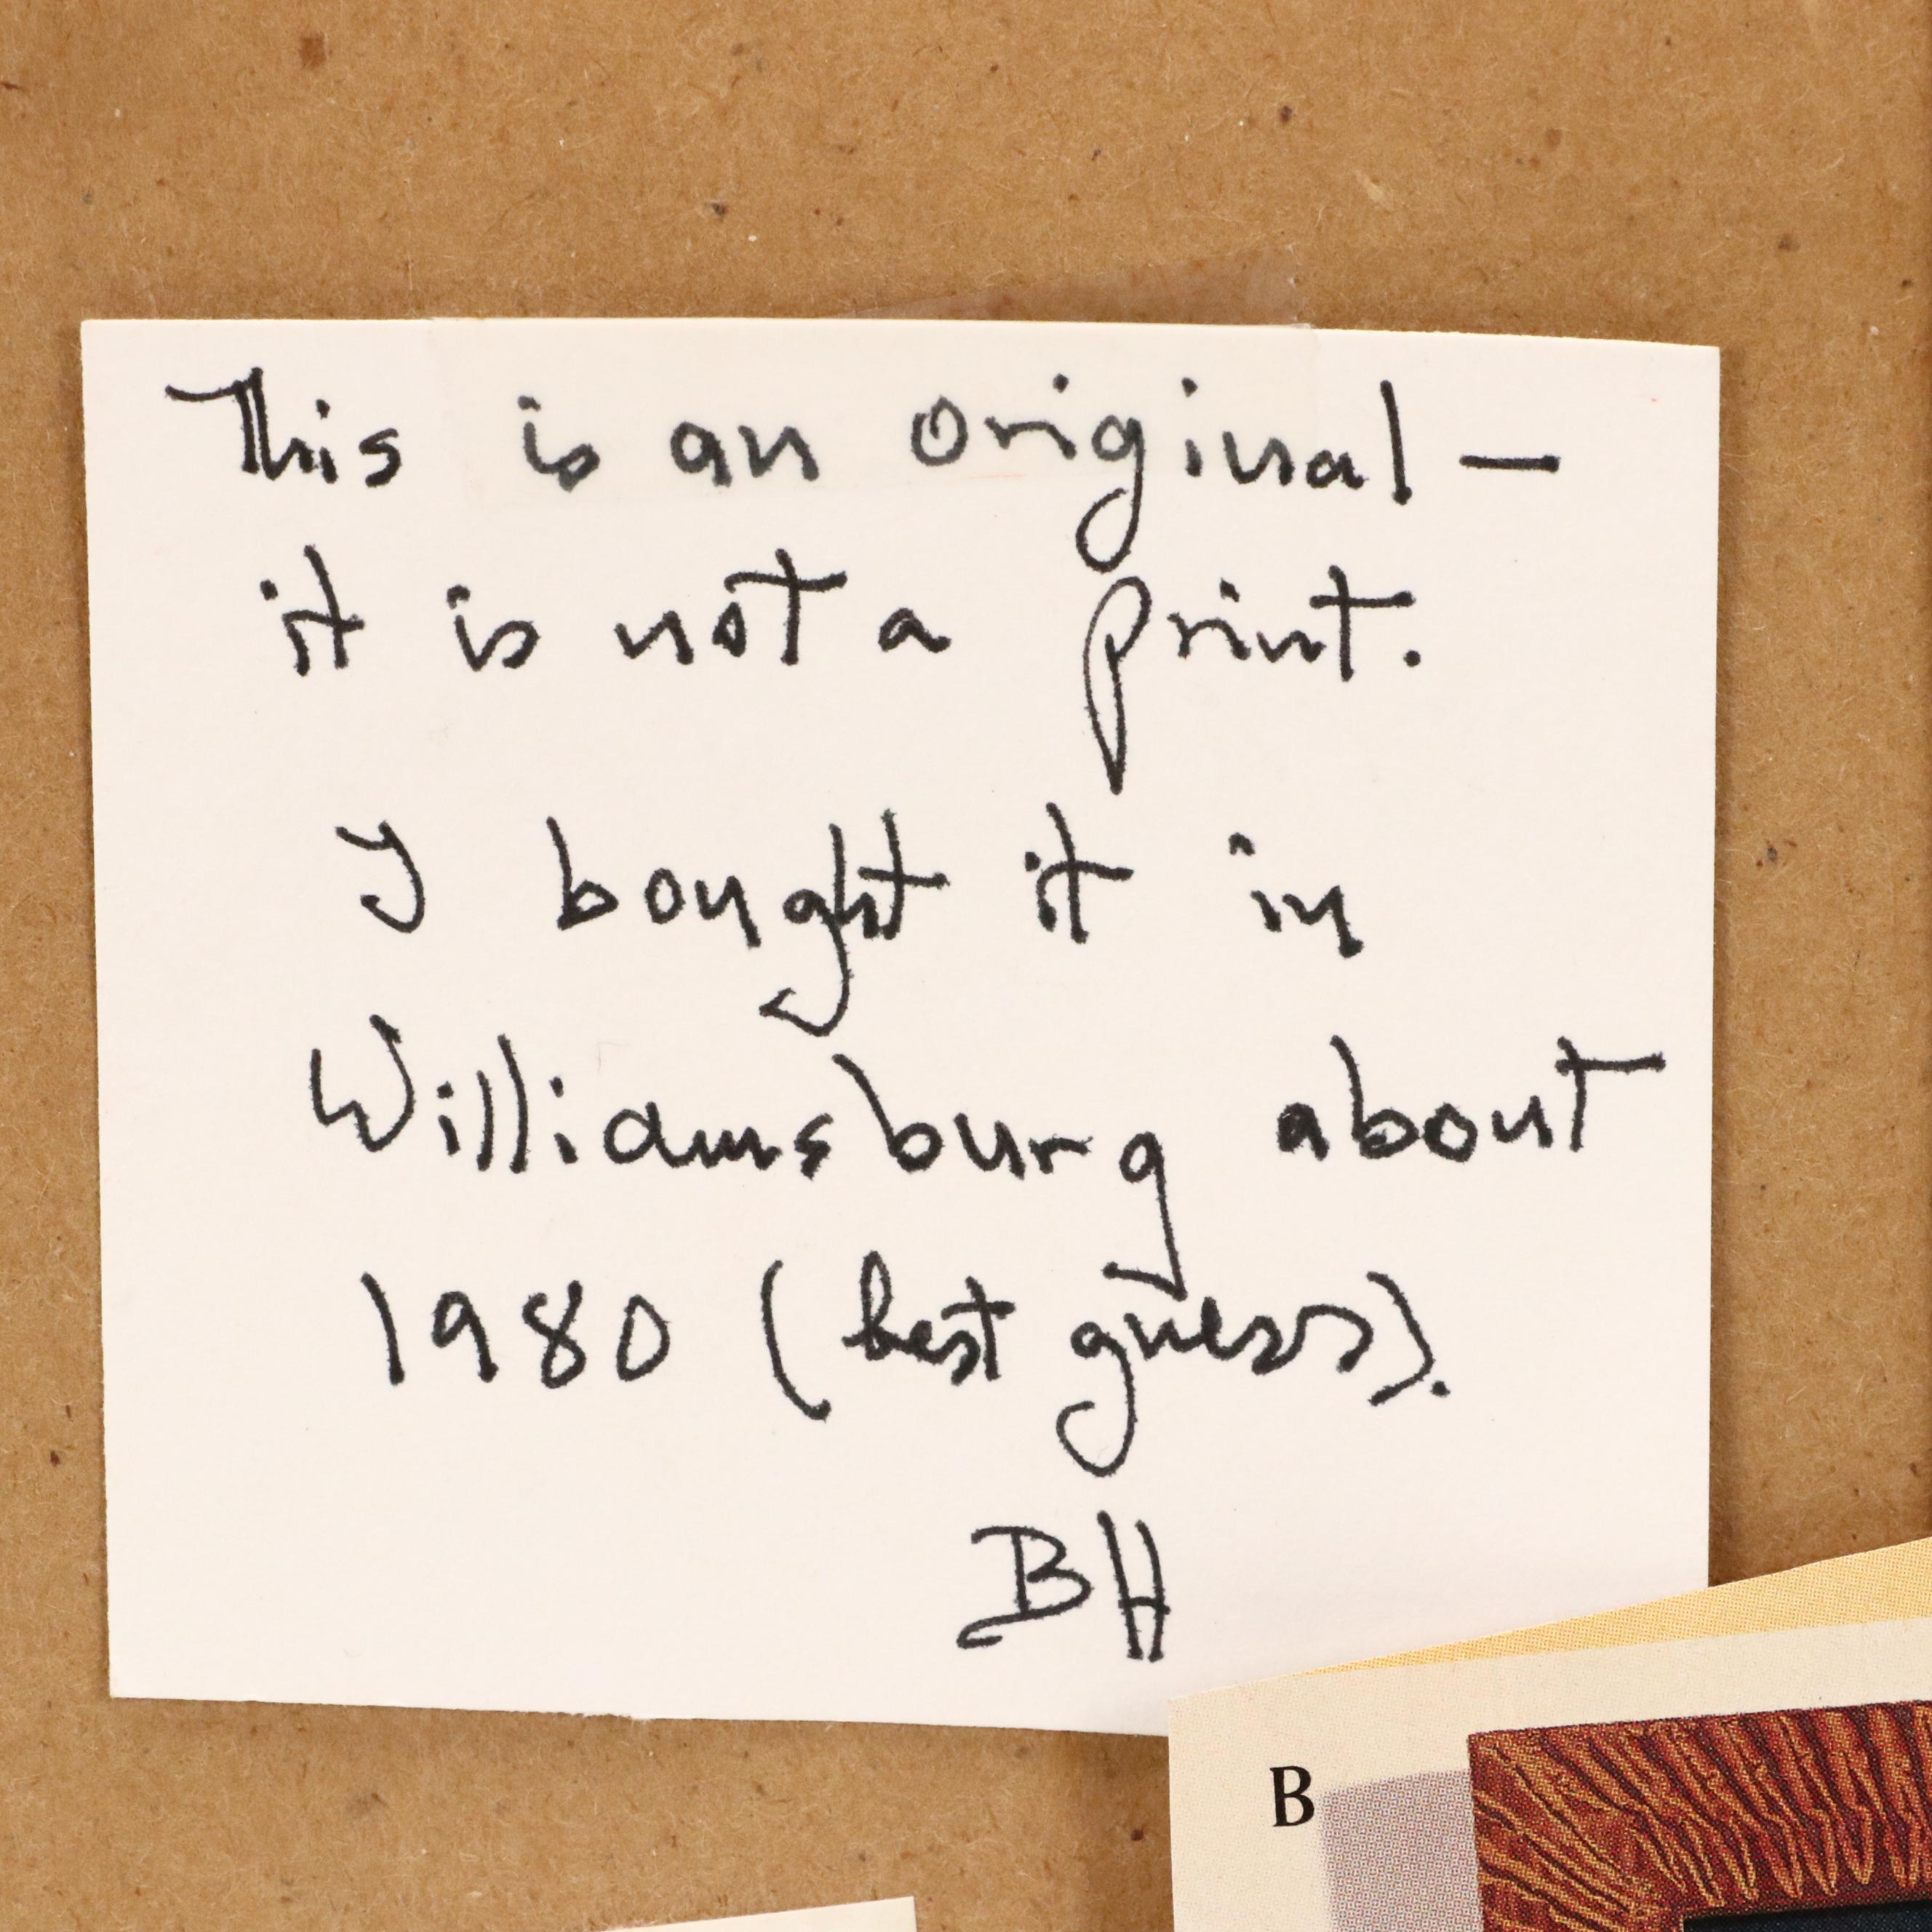 This is an original —
it is not a print.
I bought it in
Williamsburg about
1980 (best guess).
BH
B